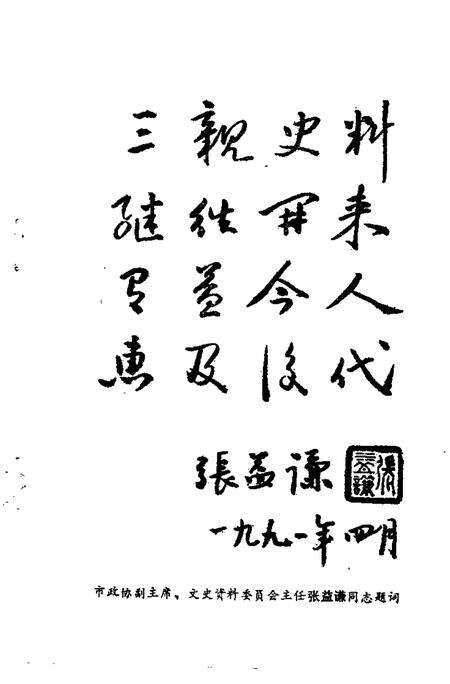 三親史料
继往开来
有益今人
惠及後代
張益谦
張益謙
一九九一年四月
市政协副主席、文史资料委员会主任张益谦同志题词